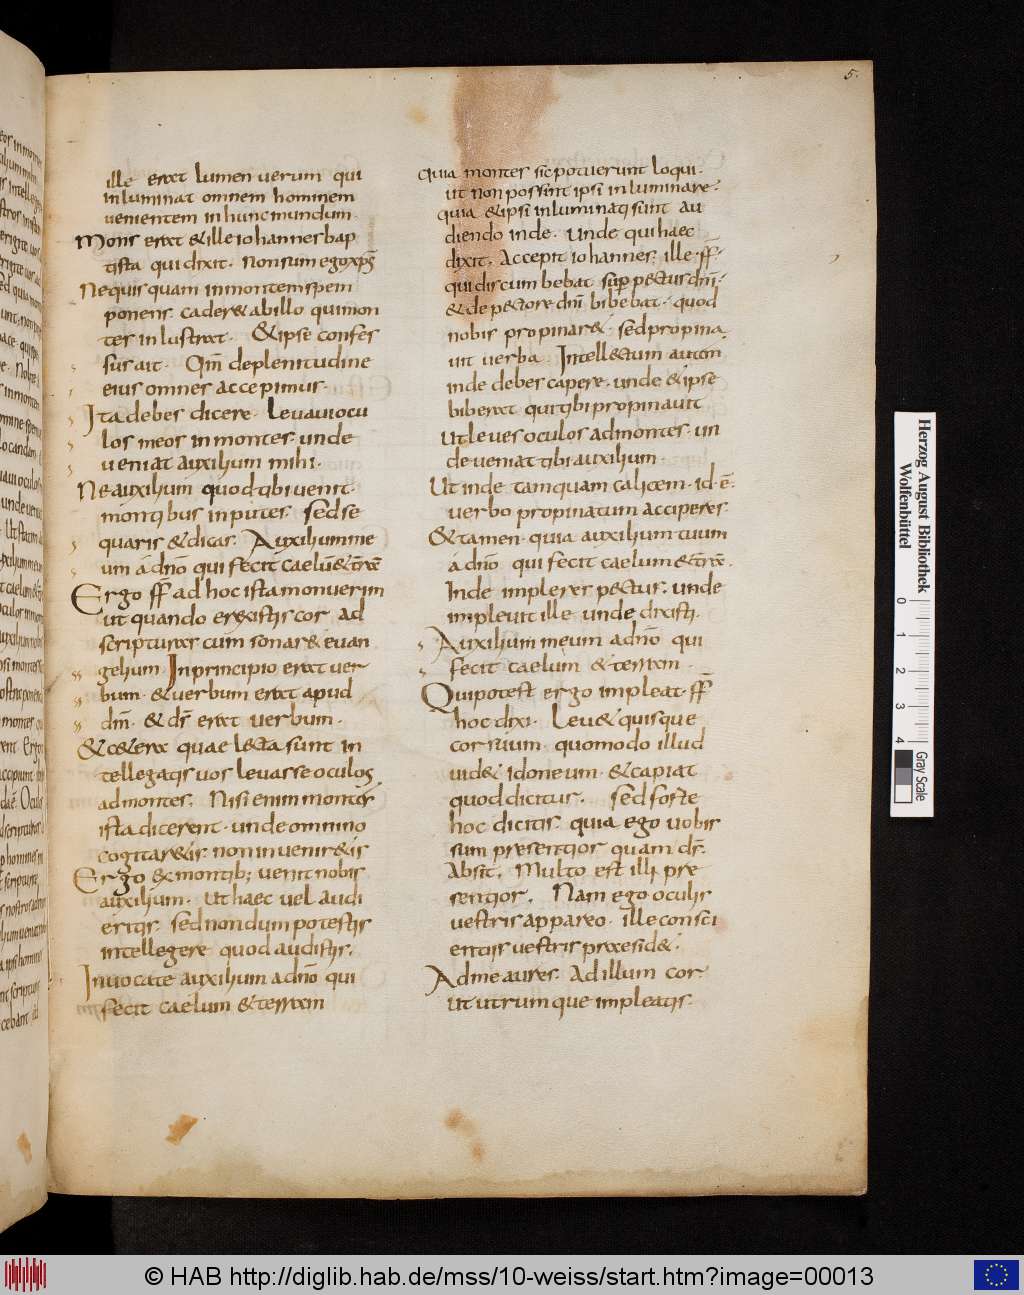 5.
ille erat lumen uerum qui
inluminat omnem hominem
uenientem in hunc mundum.
Mons erat & ille iohannes bap
tista qui dixit. non sum ego xp̄s
Ne quisquam in montem spem
ponens. cader& ab illo qui mon
tes inlustrat. & ipse confes
sus ait. Qm̄ de plenitudine
eius omnes accepimus.
Ita debes dicere. Leuaui ocu
los meos in montes. unde
ueniat auxilium mihi.
Ne auxilium quod tibi uenit.
montibus inputes sed se
quaris & dicas. Auxilium me
um a dn̄o qui fecit caelū & terrā
Ergo ff̄ ad hoc ista monuerim
ut quando erexistis cor ad
scripturas cum sonar& euan
gelium. In principio erat uer
bum. & uerbum erat apud
dm̄. & ds̄ erat uerbum.
& c&era quae l&ta sunt in
tellegatis uos leuasse oculos
ad montes. Nisi enim montes
ista dicerent. unde omnino
cogitar&is. non inuenir&is
Ergo & montib; uenit nobis
auxilium. Ut haec uel audi
eritis. sed nondum potestis
intellegere quod audistis.
Inuocate auxilium a dn̄o qui
fecit caelum & terram
Quia montes sic potuerunt loqui.
ut non possint ipsi inluminare.
quia & ipsi inluminati sunt au
diendo inde. Unde qui haec
dixit. Accepit iohannes. ille ff̄.
qui discumbebat super pectus dn̄i.
& de pectore dn̄i bibebat. quod
nobis propinar&. sed propina
uit uerba. Intell&tum autem
inde debes capere. unde & ipse
biberat qui tibi propinauit
Ut leues oculos ad montes. un
de ueniat tibi auxilium.
Ut inde tamquam calicem. id ē.
uerbo propinatum acciperes.
& tamen. quia auxilium tuum
a dn̄o qui fecit caelum & terrā.
Inde impleres pectus. unde
impleuit ille unde dixisti.
Auxilium meum a dn̄o qui
fecit caelum & terram.
Qui potest ergo impleat. ff̄
hoc dixi. Leu& quisque
cor suum. quomodo illud
uid& idoneum. & capiat
quod dicitur. sed forte
hoc dicitis. quia ego uobis
sum praesentior quam ds̄.
Absit. Multo est illi prae
sentior. Nam ego oculis
uestris appareo. ille consci
entiis uestris praesid&.
Ad me aures. Ad illum cor
ut utrumque impleatis.
Herzog August Bibliothek
Wolfenbüttel
0 1 2 3 4
Gray Scale
© HAB http://diglib.hab.de/mss/10-weiss/start.htm?image=00013